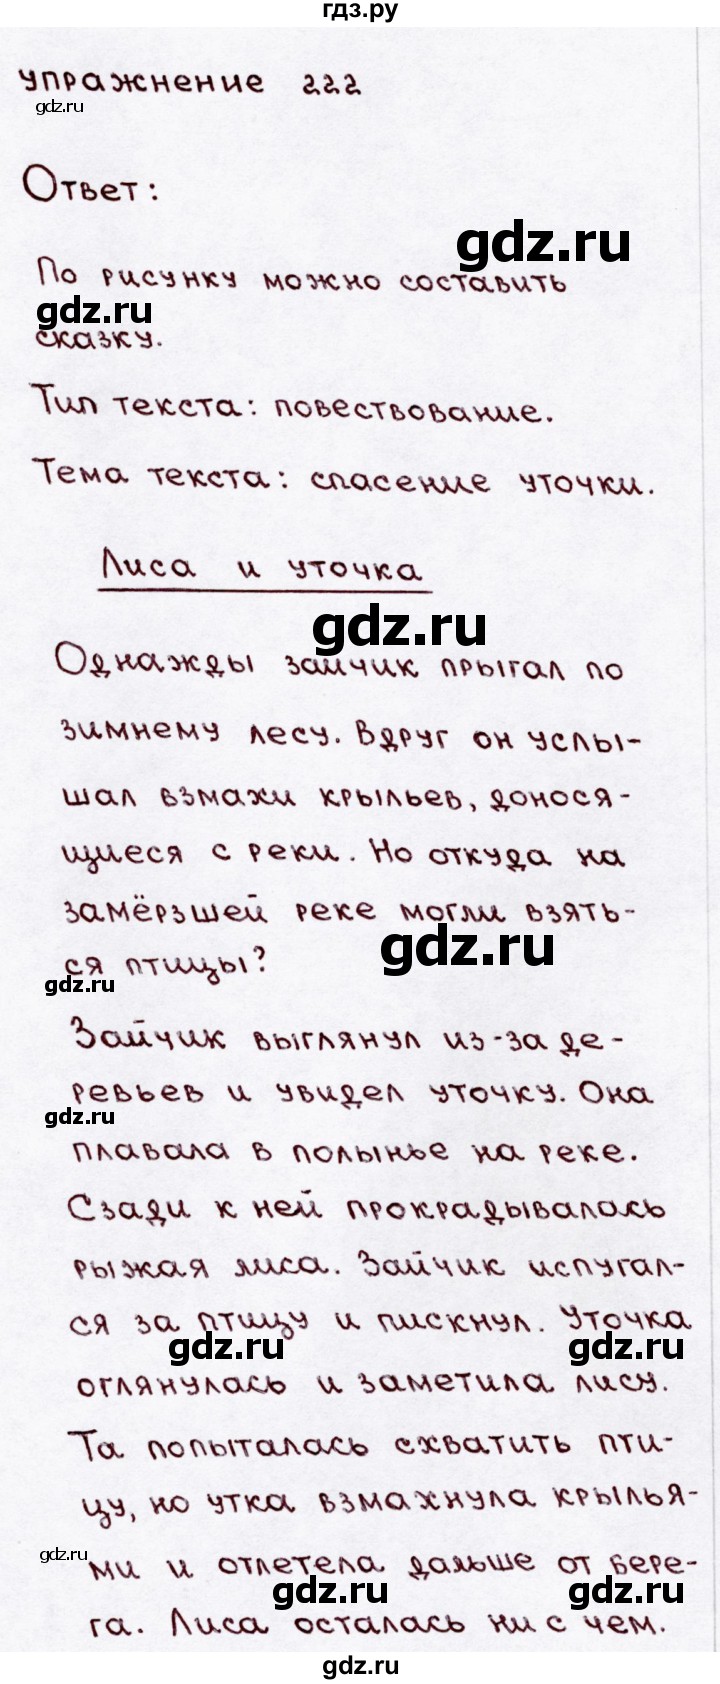 гдз.ру
упражнение 222
gdz.ru
Ответ:
gdz.ru
По рисунку можно составить
gdz.ru
сказку.
Тип текста: повествование.
Тема текста: спасение уточки.
Лиса и уточка
gdz.ru
Однажды зайчик прыгал по
зимнему лесу. Вдруг он услы-
шал взмахи крыльев, донося-
щиеся с реки. Но откуда на
замёрзшей реке могли взять-
gdz.ru
ся птицы?
gdz.ru
Зайчик выглянул из-за де-
ревьев и увидел уточку. Она
gdz.ru
плавала в полынье на реке.
Сзади к ней прокрадывалась
рыжая лиса. Зайчик испугал-
ся за птицу и пискнул. Уточка
gdz.ru gdz.ru
оглянулась и заметила лису.
Та попыталась схватить пти-
цу, но утка взмахнула крылья-
gdz.ru
ми и отлетела дальше от бере-
gdz.ru gdz.ru
га. Лиса осталась ни с чем.
gdz.ru